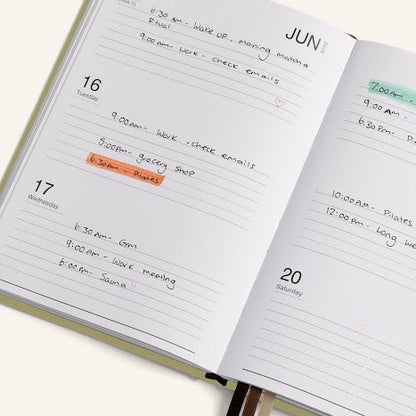 JUN
6:30 AM - Wake up, morning matcha
Ritual
9:00AM - Work - check emails
16
Tuesday
9:00AM - Work - check emails
5:00PM - grocery shop
6:30PM - Pilates
17
Wednesday
6:30AM - Gym
9:00AM - Work meeting
6:00PM - Sauna !!
7:00AM -
9:00AM -
6:30PM -
10:00AM - Pilates
12:00PM - Long
20
Saturday